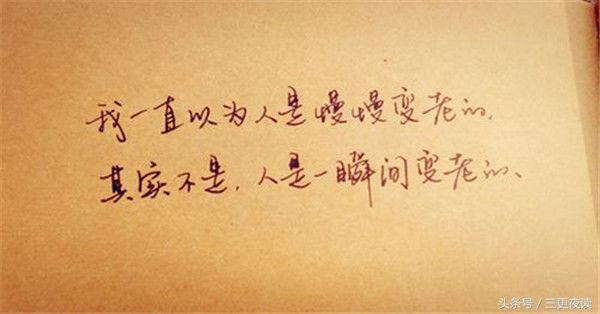 我一直以为人是慢慢变老的,
其实不是,人是一瞬间变老的、
头条号 / 三更夜读